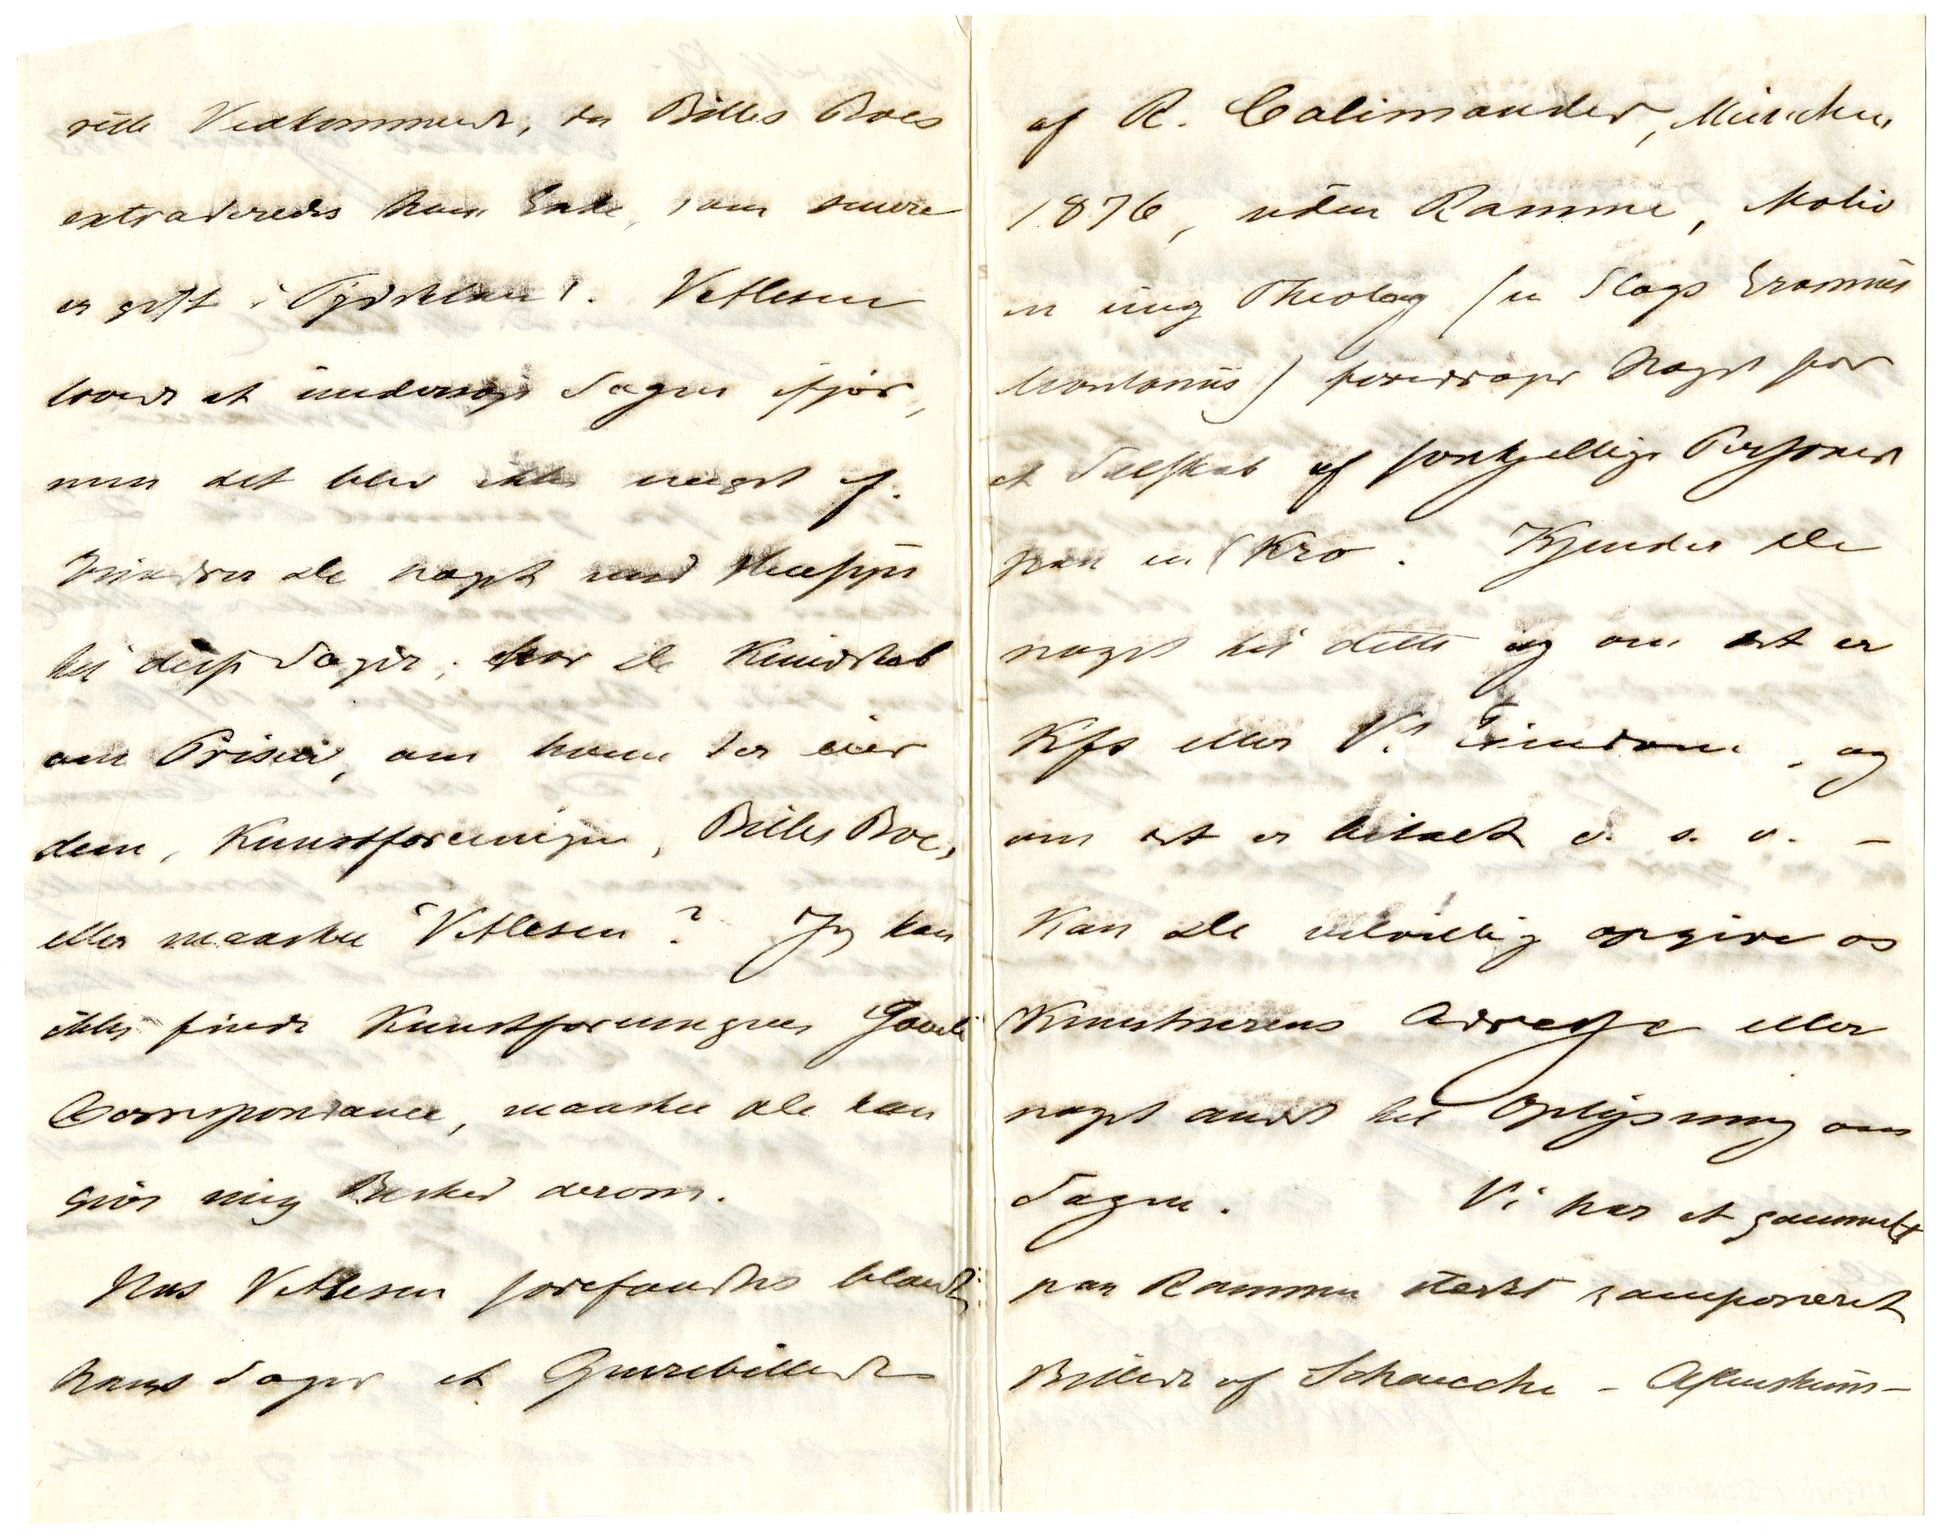 rette Vedkommende, da Billes Boes
extraderedes hans Enke, som senere
er gift i Tydskland. Vetlesen
lovede at undersøge Sagen ifjor,
men det blev ikke noget af.
Kjender De noget med Hensyn
til disse Sager, har De Kundskab
om Prisen, om hvem der eier
dem, Kunstforeningen, Billes Boe,
eller maaskee Vetlesen? Jeg kan
ikke finde Kunstforeningens Gamle
Correspondance, maaskee De kan
give mig Besked derom.
Hos Vetlesen forefandtes blandt
hans Sager et Genrebillede
af R. Calimander, München
1876, uden Ramme, Motiv
en ung Theolog (en Slags Erasmus
Montanus) foredrager Noget for
et Selskab af forskjellige Personer
paa en Kro. Kjender De
noget til dette og om det er
Kfs eller V.s Eiendom, og
om det er betalt o. s. v. –
Kan De velvillig opgive os
Kunstnerens Adresse eller
noget andet til Oplysning om
Sagen. Vi har et gammelt
paa Rammen stærkt ramponeret
Billede af Schancche – Aftenstem-